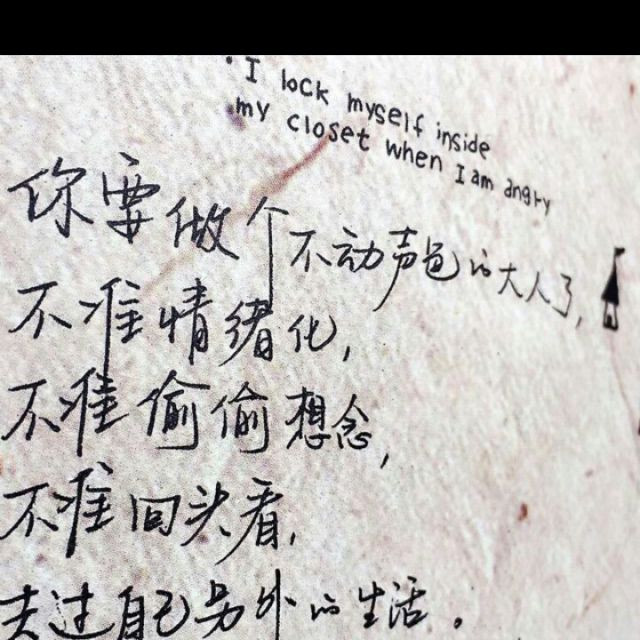 I lock myself inside
my closet when I am angry
你要做个不动声色的大人了,
不准情绪化,
不准偷偷想念,
不准回头看,
去过自己另外的生活。